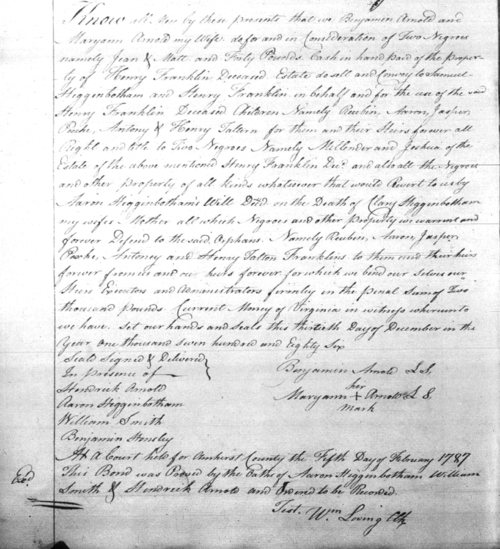 Know all Men by these presents that we Benjamin Arnold and
Maryann Arnold my Wife do for and in Consideration of Two Negroes
namely Jean & Matt and Fifty Pounds Cash in hand paid of the proper-
ty of Henry Franklin Deceasd Estate do sell and Convey to Samuel
Higginbotham and Henry Franklin in behalf and for the use of the said
Henry Franklin Deceasd Children Namely Reubin, Aaron, Jasper,
Antony & Henry for them and their Heirs forever all
Right and title to Two Negroes Namely Millender and Joshua of the
Estate of the above mentioned Henry Franklin Decd and also all the Negroes
and other property of all kinds whatsoever that would Revert to us by
Aaron Higginbotham's Will Decd on the Death of Clary Higginbotham
my wifes Mother all which Negroes and other property we warrant and
forever Defend to the said Orphans Namely Reuben, Aaron, Jasper,
Antoney and Henry Franklins to them and their heirs
forever from us and our heirs forever for which we bind our Selves our
Heirs Executors and Administrators firmly in the penal Sum of Two
thousand pounds Current Money of Virginia in witness whereunto
we have Set our hands and Seals this thirtieth Day of December in the
Year one thousand Seven hundred and Eighty Six
Seald Signed & Delivered
In presence of
Benjamin Arnold L.S.
Hendrick Arnold
her
Aaron Higginbotham
Maryann + Arnold L S
William Smith
mark
Benjamin Hensley
At a Court held for Amherst County the Fifth Day of February 1787
This Bond was Proved by the Oaths of Aaron Higginbotham William
Smith & Hendrick Arnold and Ordered to be Recorded
Test. Wm Loving Clk